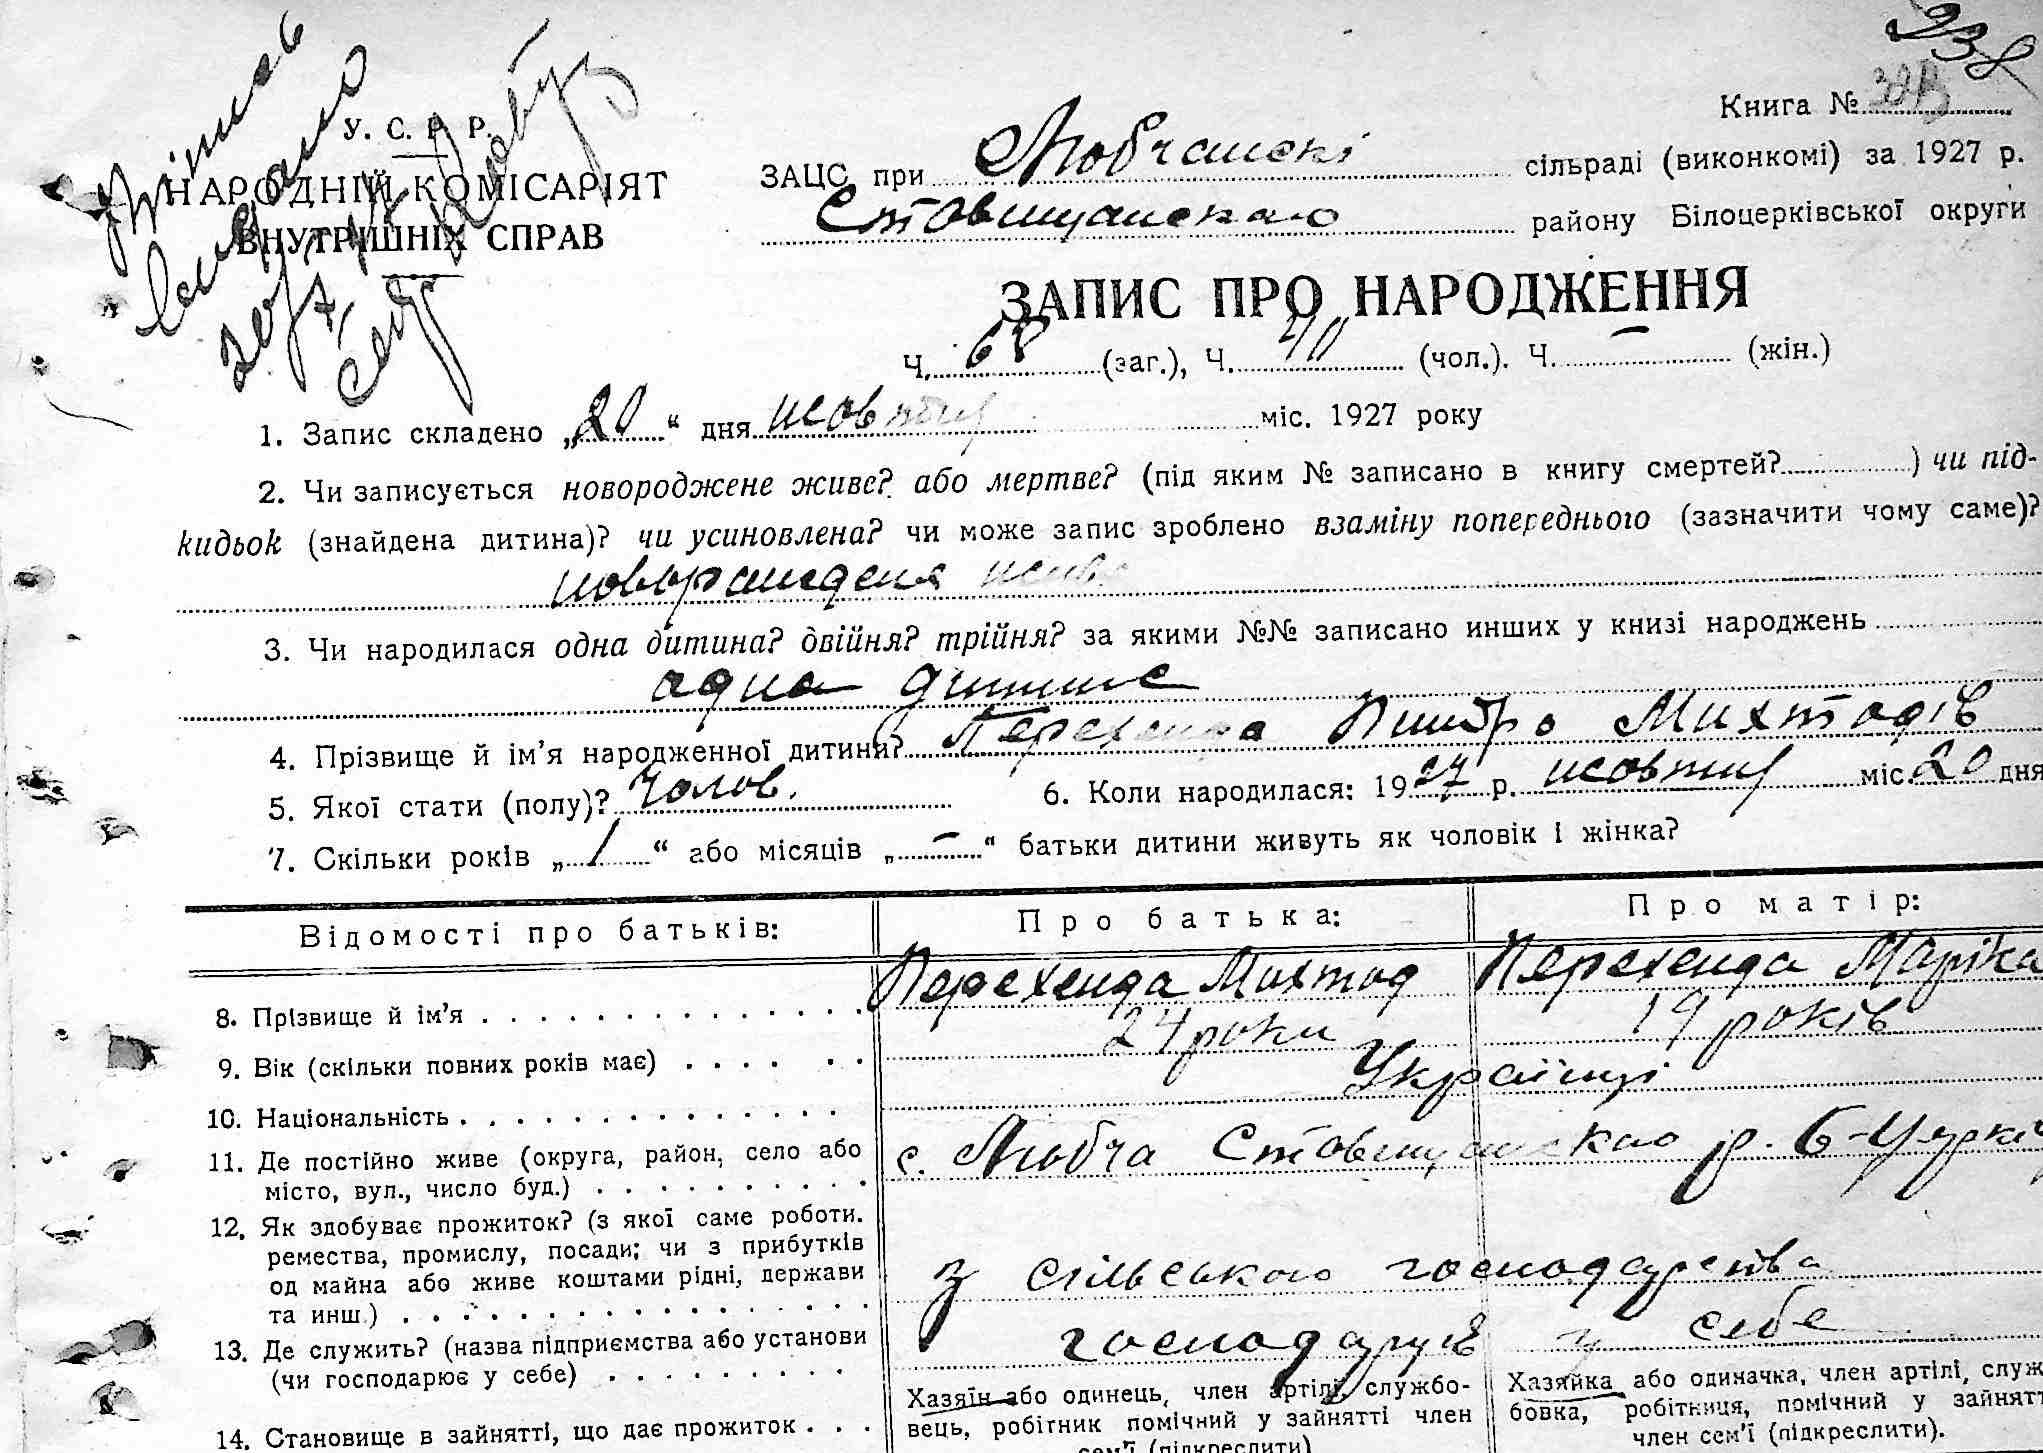 238
Книга №
У. С. Р. Р.
НАРОДНІЙ КОМІСАРІЯТ
ВНУТРІШНІХ СПРАВ
ЗАЦС при Любчанскі сільраді (виконкомі) за 1927 р.
Стовищанскаго району Білоцерківської округи
ЗАПИС ПРО НАРОДЖЕННЯ
Ч. 68 (заг.), Ч. 40 (чол.). Ч. — (жін.)
1. Запис складено „20“ дня жовтня міс. 1927 року
2. Чи записується новороджене живе? або мертве? (під яким № записано в книгу смертей?) чи під-
кидьок (знайдена дитина)? чи усиновлена? чи може запис зроблено взаміну попереднього (зазначити чому саме)?
3. Чи народилася одна дитина? двійня? трійня? за якими №№ записано инших у книзі народжень
одна дитине
4. Прізвище й ім’я народженної дитини? Перехенда Михтодів
5. Якої стати (полу)? чолов. 6. Коли народилася: 1927 р. жовтня міс 20 дня
7. Скільки років „1“ або місяців „—“ батьки дитини живуть як чоловік і жінка?
Відомості про батьків: Про батька: Про матір:
8. Прізвище й ім’я Перехенда Михтод Перехенда Маріка
9. Вік (скільки повних років має) 24 роки 19 років
10. Національність Українці
11. Де постійно живе (округа, район, село або
місто, вул., число буд.) с. Любча Стовищанскаго р. Б-Церків
12. Як здобуває прожиток? (з якої саме роботи.
ремества, промислу, посади; чи з прибутків
од майна або живе коштами рідні, держави
та инш.) З сільського господарства
13. Де служить? (назва підприємства або установи
(чи господарює у себе) господарує у себе
14. Становище в зайнятті, що дає прожиток
Хазяїн або одинець, член артілі, службо-
вець, робітник помічний у зайнятті член
сем’ї (підкреслити)
Хазяйка або одиначка, член артілі, служ
бовка, робітниця, помічний у зайнятт
член сем’ї (підкреслити).